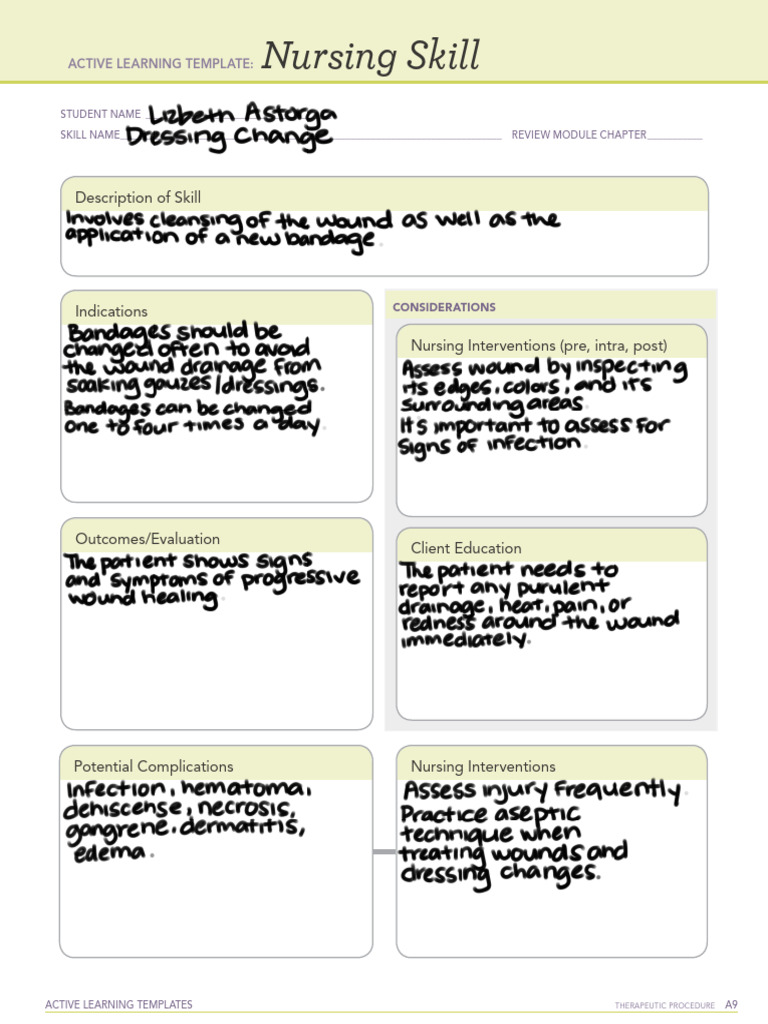 ACTIVE LEARNING TEMPLATE: Nursing Skill
STUDENT NAME Lizbeth Astorga
SKILL NAME Dressing Change REVIEW MODULE CHAPTER
Description of Skill
Involves cleansing of the wound as well as the
application of a new bandage.
Indications
Bandages should be
changed often to avoid
the wound drainage from
soaking gauzes/dressings.
Bandages can be changed
one to four times a day.
CONSIDERATIONS
Nursing Interventions (pre, intra, post)
Assess wound by inspecting
its edges, colors, and its
surrounding areas.
It's important to assess for
signs of infection.
Outcomes/Evaluation
The patient shows signs
and symptoms of progressive
wound healing.
Client Education
The patient needs to
report any purulent
drainage, heat, pain, or
redness around the wound
immediately.
Potential Complications
Infection, hematoma,
dehiscense, necrosis,
gangrene, dermatitis,
edema.
Nursing Interventions
Assess injury frequently.
Practice aseptic
technique when
treating wounds and
dressing changes.
ACTIVE LEARNING TEMPLATES THERAPEUTIC PROCEDURE A9